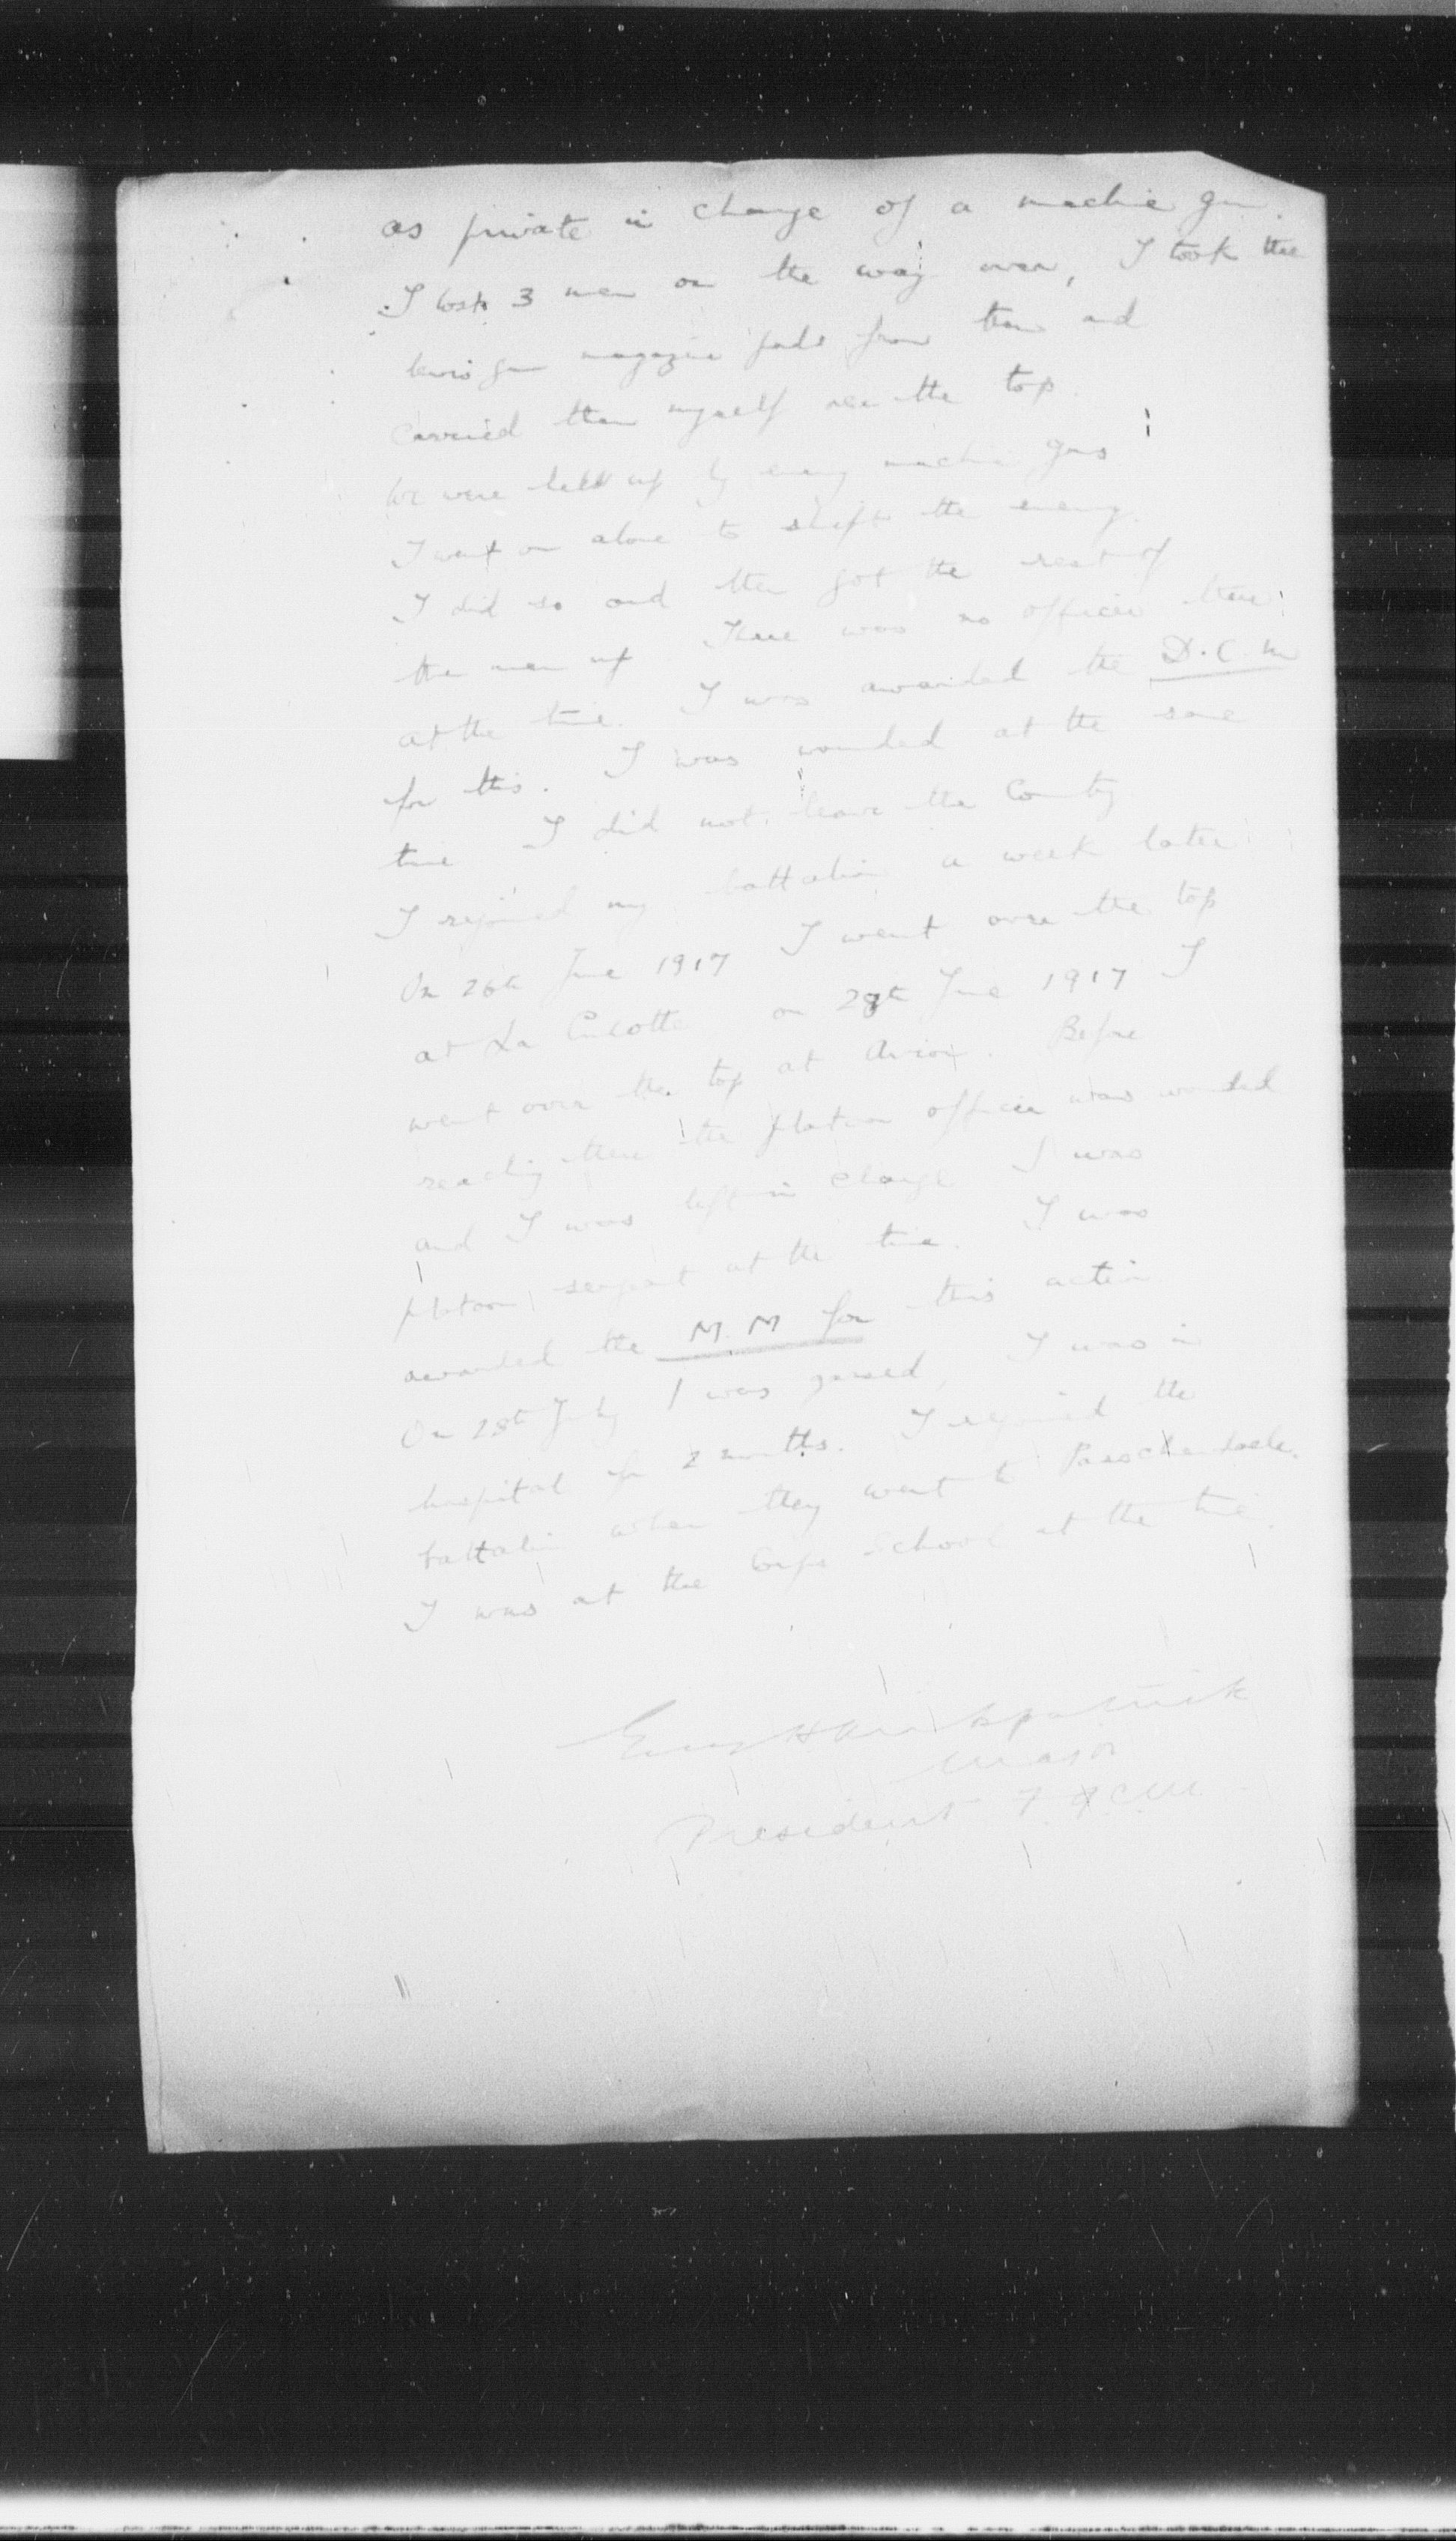 as private in charge of a machine gun.
I lost 3 men on the way over, I took the
lewis gun magazine pads from them and
carried them myself over the top.
We were held up by enemy machine guns
I went on alone to shift the enemy.
I did so and then got the rest of
the men up There was no officer there
at the time. I was awarded the D.C.M
for this. I was wounded at the same
time I did not leave the Country
I rejoined my battalion a week later
On 26th June 1917 I went over the top
at La Culotte on 28th June 1917 I
went over the top at Avion. Before
reaching there the platoon officer was wounded
and I was left in charge I was
platoon sergeant at the time. I was
awarded the M.M for this action
On 28th July I was gassed, I was in
hospital for 2 months. I rejoined the
battalion when they went to Passchendaele.
I was at the Corps School at the time.
Kirkpatrick
Major
President F.G.C.M.